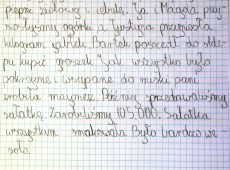 pieprz żułtoszy i cebule. Ja i Magda przy
niosłyśmy ogórki a Justyna przyniosła
kilogram jabłek. Bartek poszedł do skle
pu kupić groszek. Jak wszystko było
pokrojone i wsypane do miski pani
zrobiła majonez. Później sprzedawaliśmy
sałatkę. Zarobiliśmy 105.000. Sałatka
wszystkim smakowała. Było bardzo we
soło.